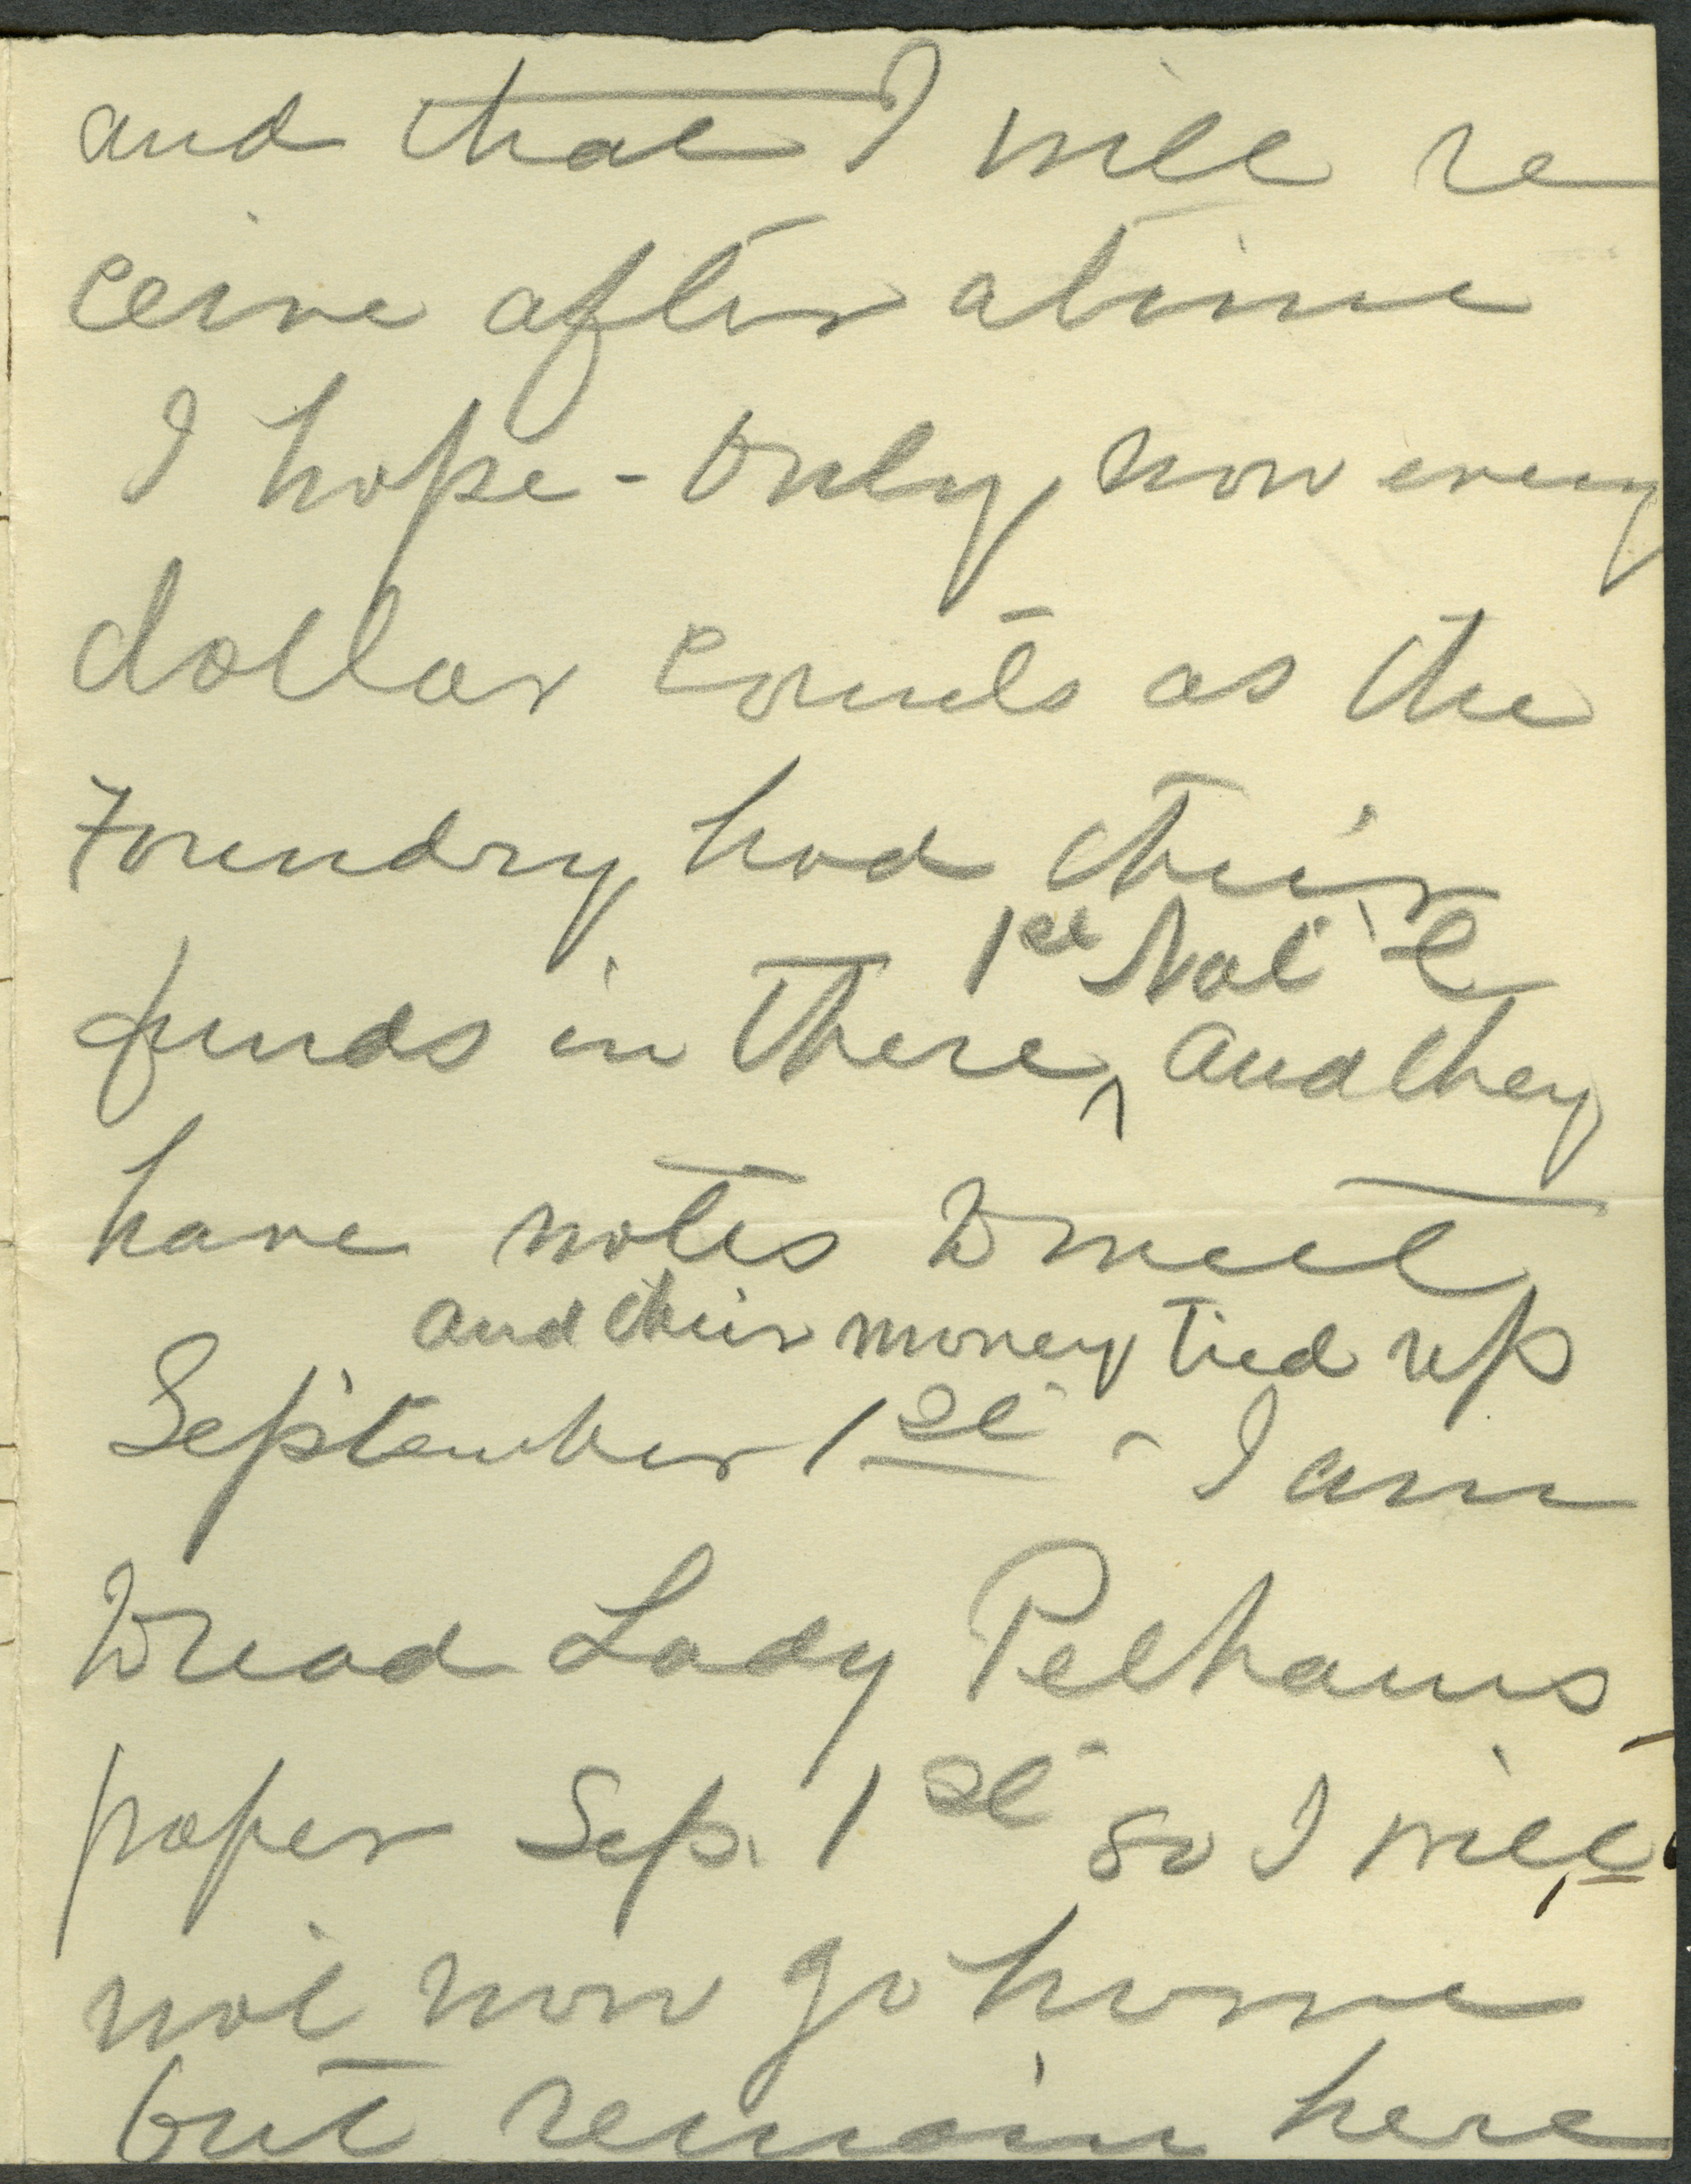 and that I will re
ceive after a time
I hope - Only, now every
dollar counts as the
Foundry had their
1st Nat'l
funds in there, and they
have notes to meet
and their money tied up
September 1st - I am
to read Lady Pelhams
paper Sep. 1st so I will
not now go home
but remain here